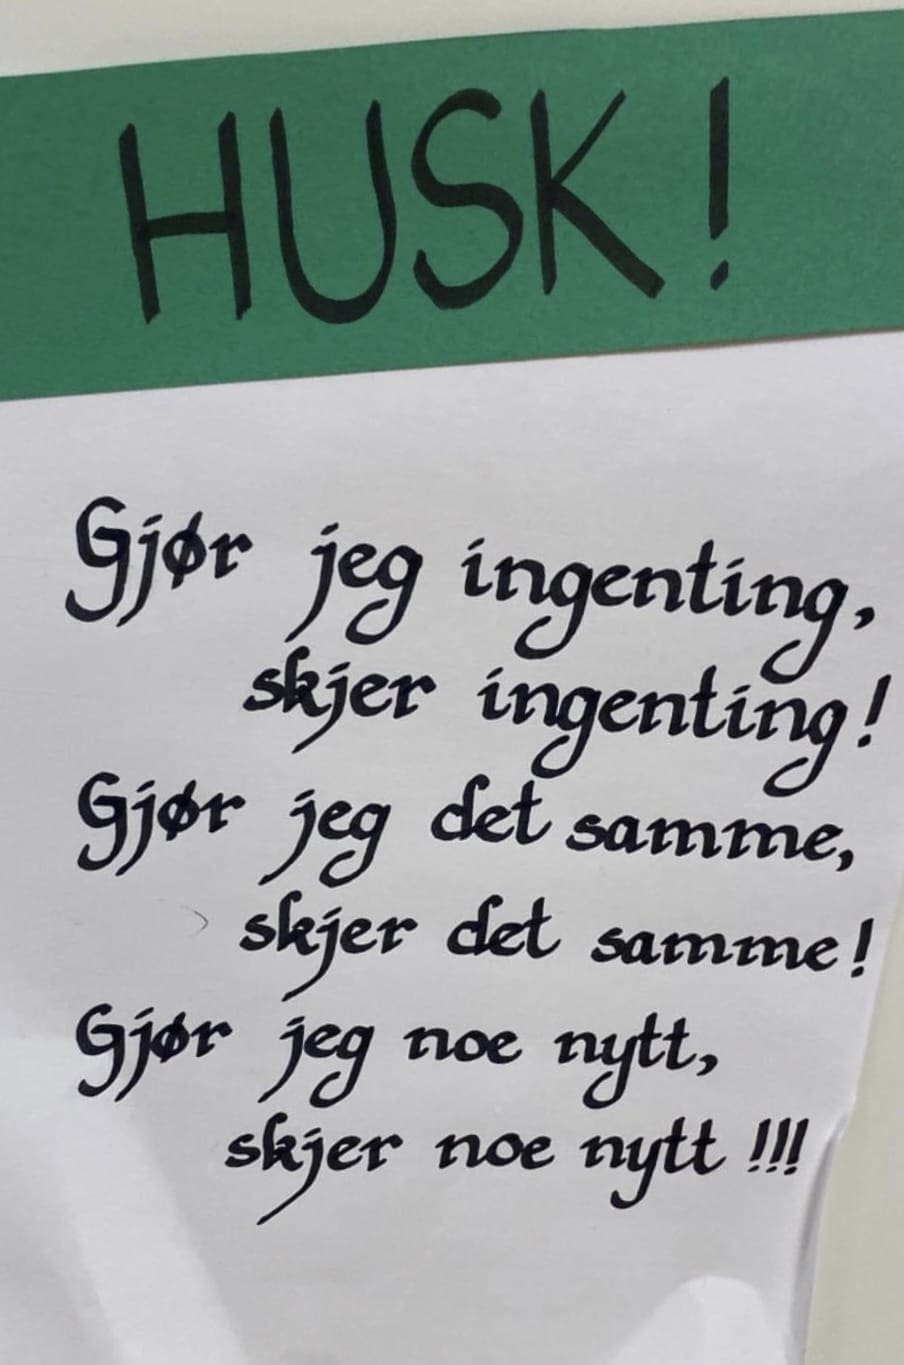 HUSK!
Gjør jeg ingenting,
skjer ingenting!
Gjør jeg det samme,
skjer det samme!
Gjør jeg noe nytt,
skjer noe nytt!!!